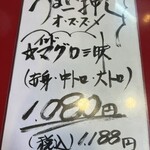 うまい押し
オススメ
☆マグロ三昧
(赤身・中トロ・大トロ)
1.080円
(税込)1.188円